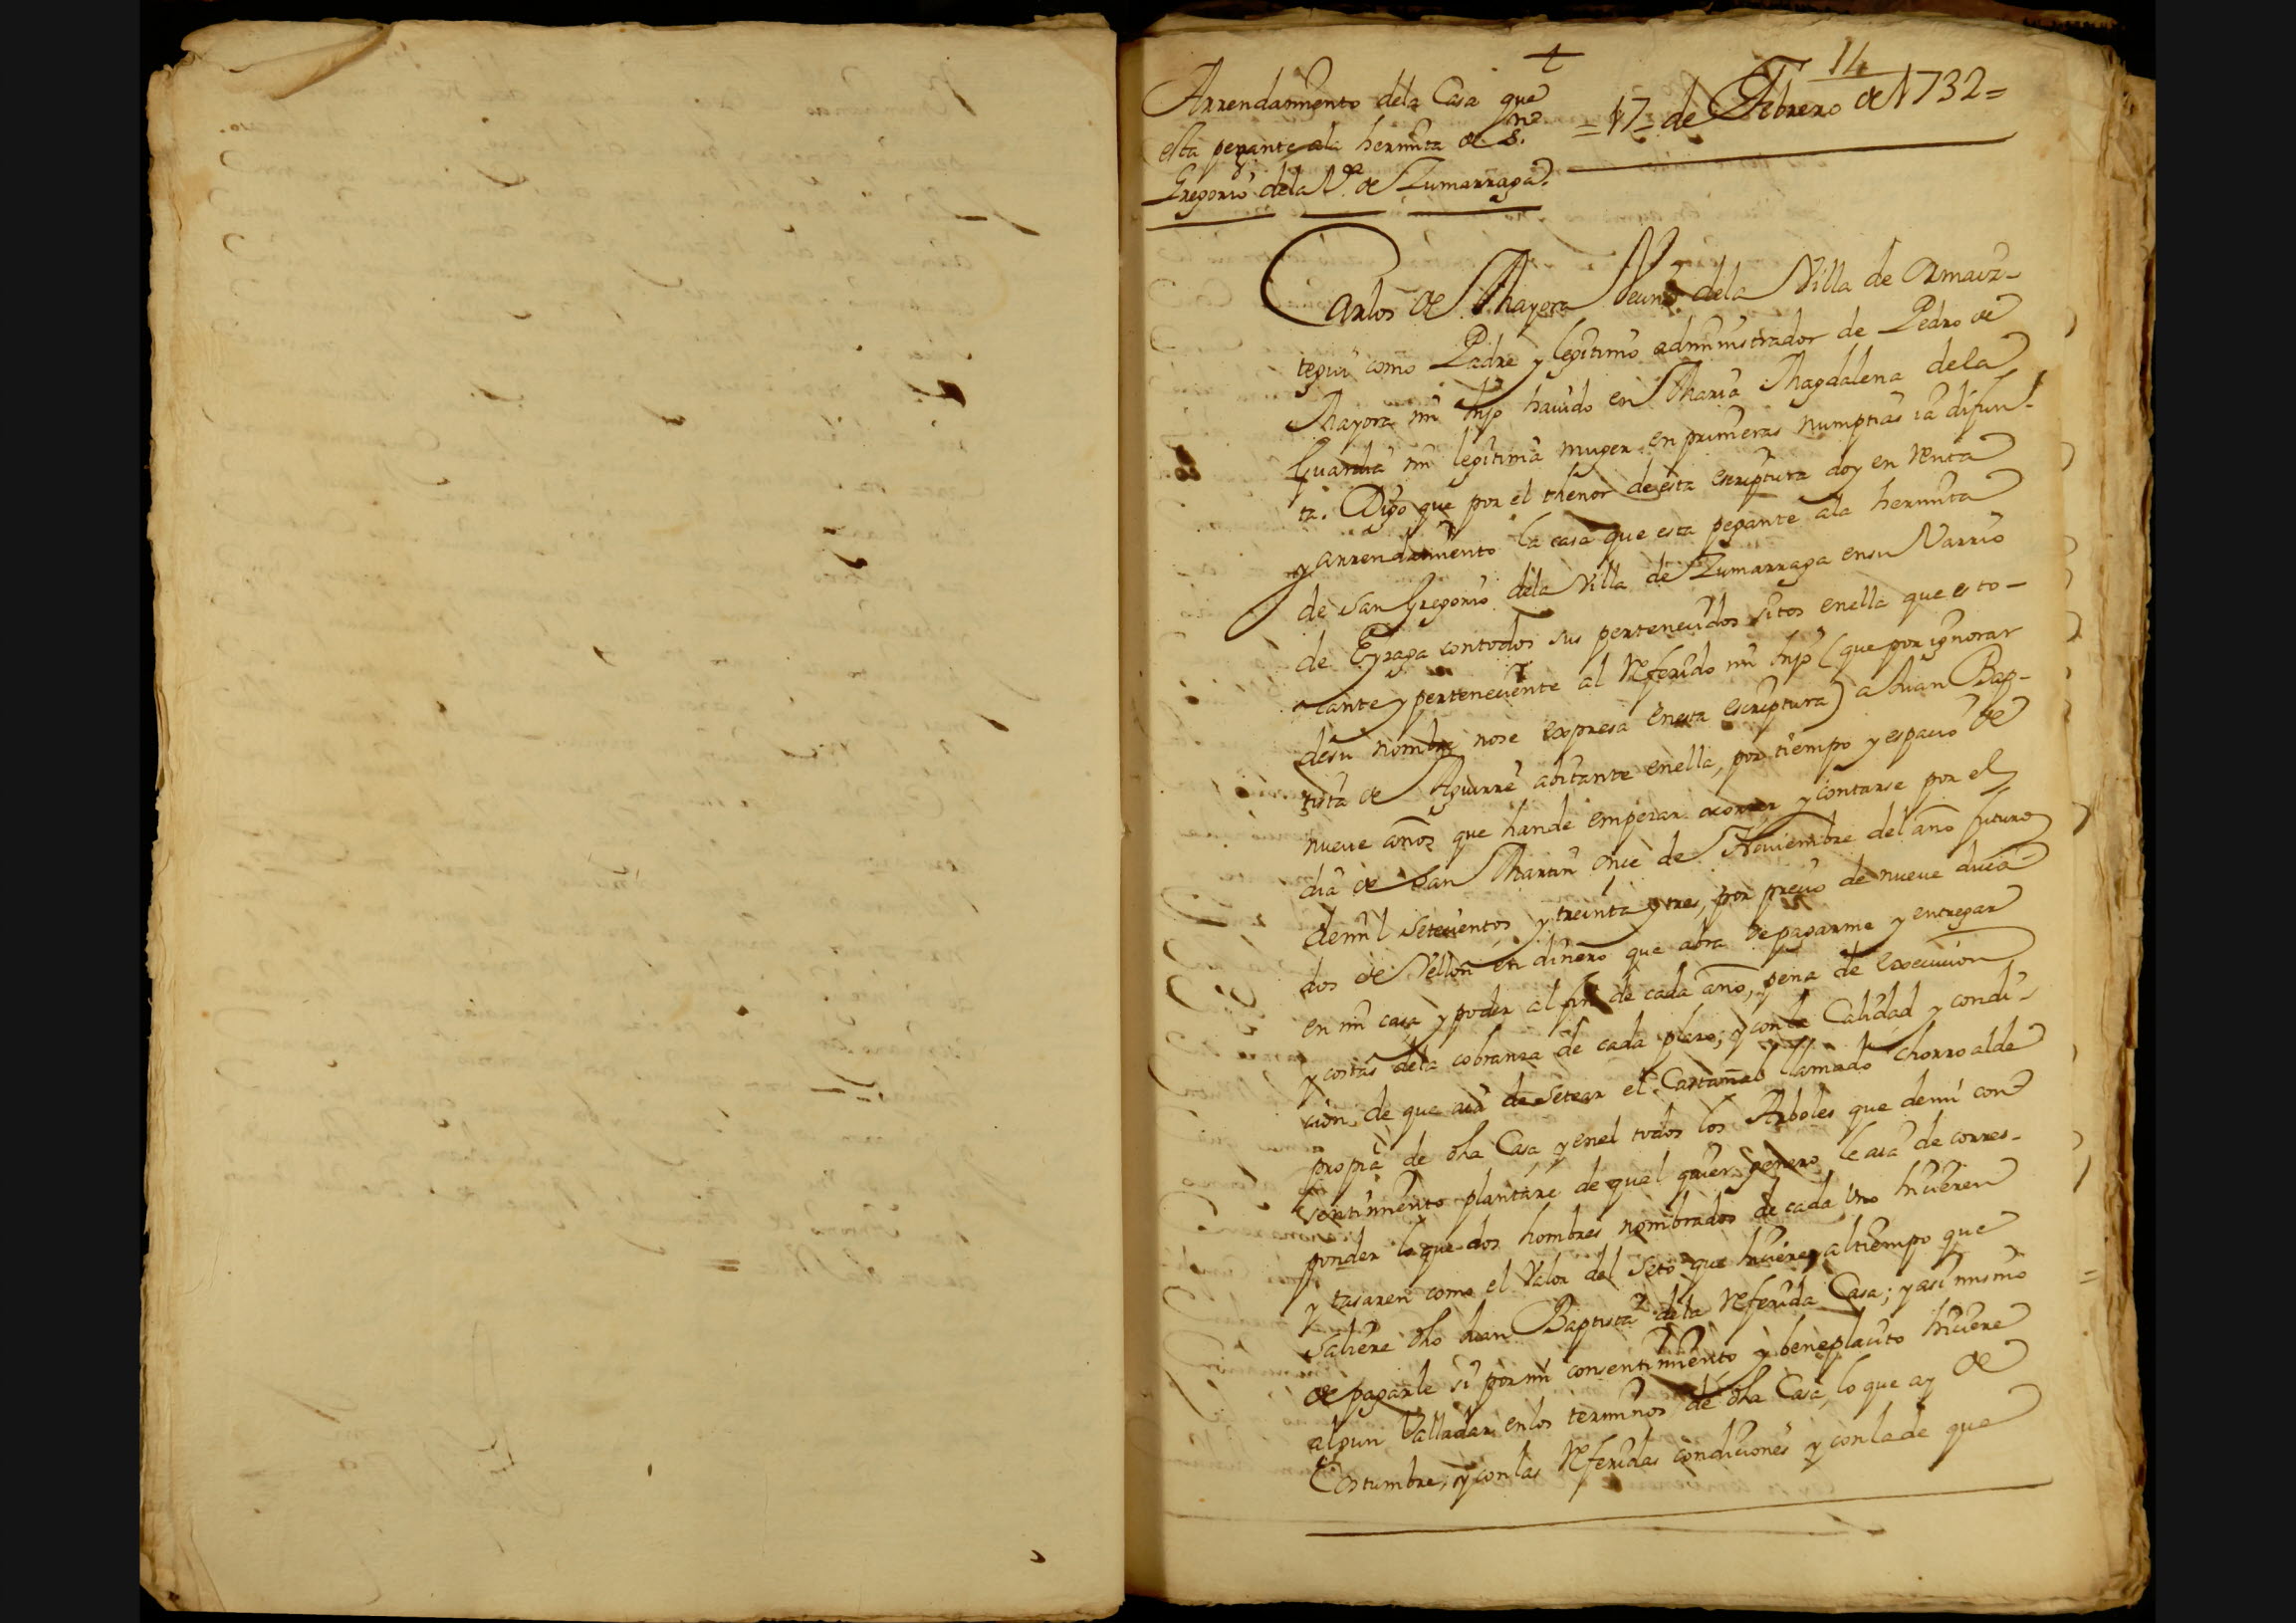 14
Arrendamiento dela Casa que
esta pegante ala hermita de S.n
Gregorio dela V.a de Zumarraga.
= 17 = de Febrero de 1732 =
Carlos de Mayora Vecino dela Villa de Ormaiz-
tegui como Padre y legitimo administrador de Pedro de
Mayora mi hijo hauido en Maria Magdalena dela
Guardia mi legitima muger en primeras numptias ia difun-
ta. Digo que por el thenor de esta escriptura doy en renta
y arrendamiento la casa que esta pegante ala hermita
de San Gregorio dela Villa de Zumarraga ensu Varrio
de Eyzaga contodos sus pertenecidos sitos enella que es to-
cante y perteneciente al referido mi hijo (que por ignorar
desu nombre nose expresa enesta escriptura) a Juan Bap-
tista de Aguirre abitante enella, por tiempo y espacio de
nueue años que hande empezar acorrer y contarse por el
dia de San Martin once de Nouiembre del año futuro
demil setecientos y treinta y tres, por precio de nueue duca-
dos de Vellon en dinero que abra de pagarme y entregar
en mi casa y poder al fin de cada año, pena de execucion
y costas dela cobranza de cada plazo; y con la Calidad y condi-
cion, de que aia de setear el Castañal llamado chorroalde
propia de dha Casa y enel todos los Arboles que demi con
sentimiento plantare de qual quier genero le aia de corres-
ponder loque dos hombres nombrados de cada Uno hicieren
y tasaren como el Valor del Seto que huiere, altiempo que
saliere dho Juan Baptista dela referida Casa; y asi mismo
de pagarle si por mi consentimiento y beneplacito hiciere
algun Valladar enlos terminos de dha Casa, lo que ay de
Costumbre; y con las referidas condiciones y conlade que